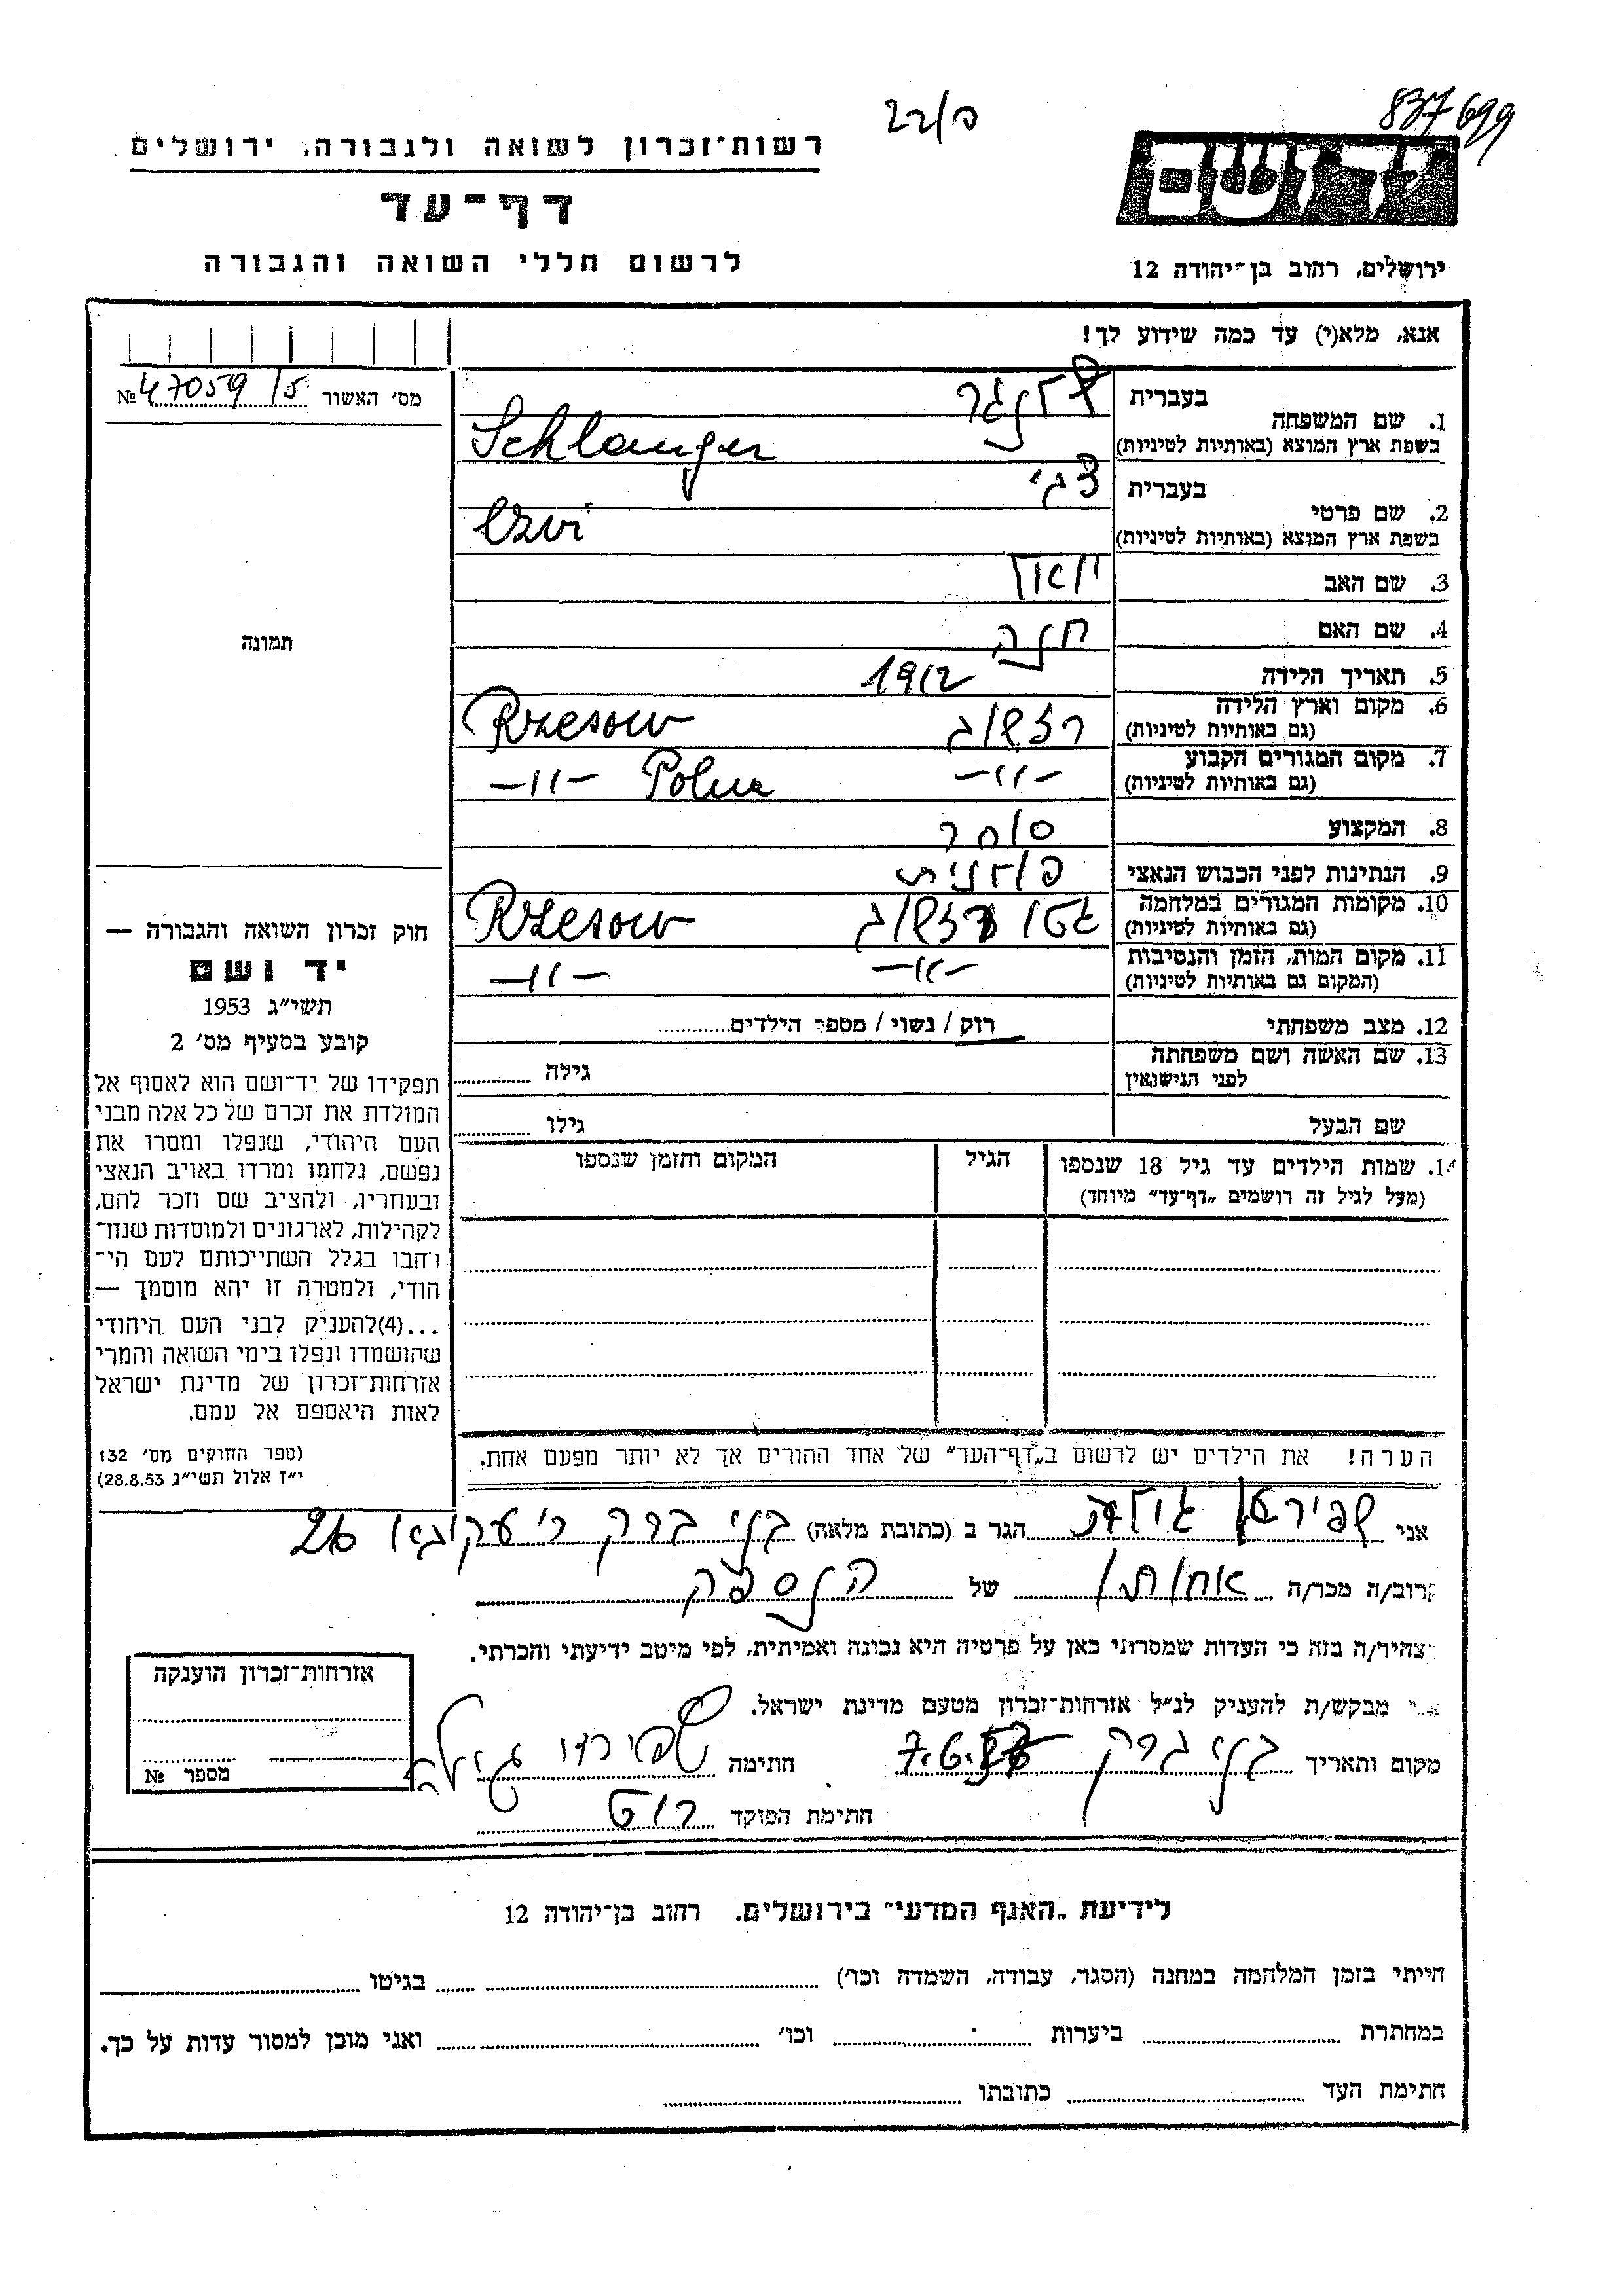 837699
22/פ
רשות־זכרון לשואה ולגבורה, ירושלים
דף־עד
לרשום חללי השואה והגבורה
יד ושם
ירושלים, רחוב בן־יהודה 12
אנא, מלא(י) עד כמה שידוע לך!
מס׳ האשור № 47059/5
1. שם המשפחה בעברית שלנגר
בשפת ארץ המוצא (באותיות לטיניות) Schlanger
2. שם פרטי בעברית צבי
בשפת ארץ המוצא (באותיות לטיניות) Czvi
3. שם האב יואל
4. שם האם חנה
5. תאריך הלידה 1912
6. מקום וארץ הלידה רזשוב Rzesow
(גם באותיות לטיניות)
7. מקום המגורים הקבוע –״– Polin –״–
(גם באותיות לטיניות)
8. המקצוע סוחר
9. הנתינות לפני הכבוש הנאצי פולנית
10. מקומות המגורים במלחמה גטו רזשוב Rzesow
(גם באותיות לטיניות)
11. מקום המות, הזמן והנסיבות –״– –״–
(המקום גם באותיות לטיניות)
12. מצב משפחתי רוק / נשוי / מספר הילדים
13. שם האשה ושם משפחתה גילה
לפני הנישואין
שם הבעל גילו
14. שמות הילדים עד גיל 18 שנספו הגיל המקום והזמן שנספו
(מעל לגיל זה רושמים „דף־עד״ מיוחד)
הערה! את הילדים יש לרשום ב„דף־העד״ של אחד ההורים אך לא יותר מפעם אחת.
תמונה
חוק זכרון השואה והגבורה —
יד ושם
תשי״ג 1953
קובע בסעיף מס׳ 2
תפקידו של יד־ושם הוא לאסוף אל
המולדת את זכרם של כל אלה מבני
העם היהודי, שנפלו ומסרו את
נפשם, נלחמו ומרדו באויב הנאצי
ובעוזריו, ולהציב שם וזכר להם,
לקהילות, לארגונים ולמוסדות שנח־
רבו בגלל השתייכותם לעם הי־
הודי, ולמטרה זו יהא מוסמך —
...(4)להעניק לבני העם היהודי
שהושמדו ונפלו בימי השואה והמרי
אזרחות־זכרון של מדינת ישראל
לאות היאספם אל עמם.
(ספר החוקים מס׳ 132
י״ז אלול תשי״ג 28.8.53)
אני שפירא הגר ב (כתובת מלאה) בני ברק ר׳ עקיבא 26
קרוב/ה מכר/ה אחותו של הנספה
מצהיר/ה בזה כי העדות שמסרתי כאן על פרטיה היא נכונה ואמיתית, לפי מיטב ידיעתי והכרתי.
אני מבקש/ת להעניק לנ״ל אזרחות־זכרון מטעם מדינת ישראל.
מקום ותאריך בני ברק חתימה
חתימת הפוקד רוט
אזרחות־זכרון הוענקה
מספר №
לידיעת „האגף המדעי״ בירושלים. רחוב בן־יהודה 12
הייתי בזמן המלחמה במחנה (הסגר, עבודה, השמדה וכו׳) בגיטו
במחתרת ביערות וכו׳ ואני מוכן למסור עדות על כך.
חתימת העד כתובתו